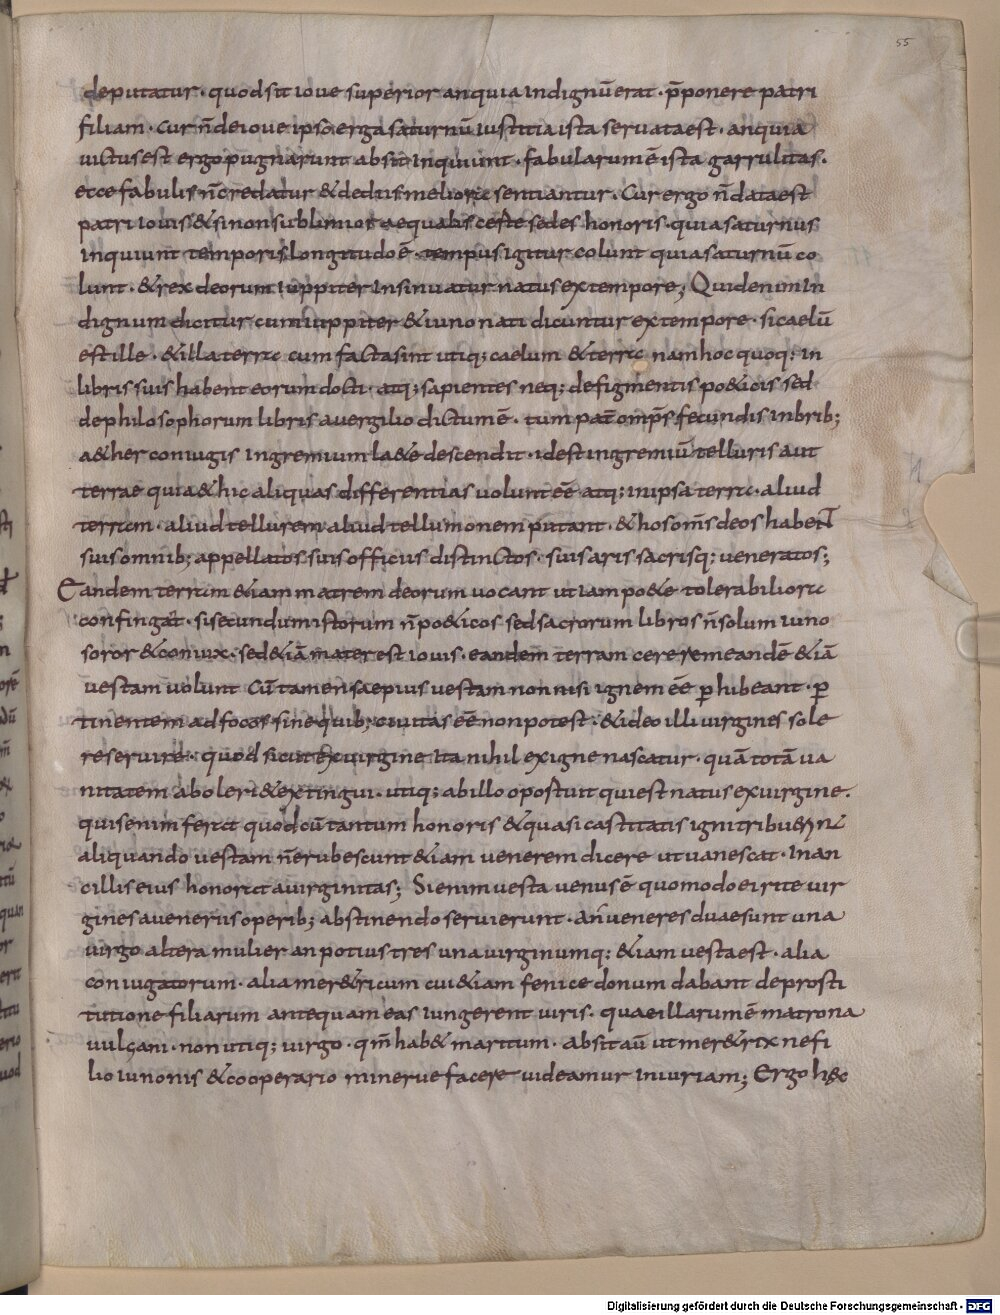 55
deputatur · quod sit ioue superior an quia indignū erat · p̄ponere patri
filiam · Cur n̄ de ioue ipso erga saturnū iustitia ista seruata est · an quia
uictus est ergo pugnarunt absit inquiunt · fabularum ē ista garrulitas ·
ecce fabulis n̄ credatur & de diis meliora sentiantur · Cur ergo n̄ data est
patri iouis & si non sublimior aequalis certe sedes honoris · quia saturnus
inquiunt temporis longitudo ē · tempus igitur colunt qui a saturnū co
lunt · & rex deorum iuppiter insinuatur natus ex tempore; Quid enim in
dignum dicitur cum iuppiter & iuno nati dicuntur ex tempore · si caelū
est ille · & illa terra cum facta sint utiq; caelum & terra nam hoc quoq; in
libris suis habent eorum docti · atq; sapientes neq; de figmentis po&icis sed
de philosophorum libris a uergilio dictum ē · tum pat̄ omp̄s fecundis inbrib;
a&her coniugis in gremium la&e descendit · id est in gremiū telluris aut
terrae quia & hic aliquas differentias uolunt eē atq; in ipsa terra · aliud
terram · aliud tellurem aliud tellumonem putant · & hos om̄s deos habent
suis omnib; appellatos suis officiis distinctos · suis aris sacrisq; ueneratos;
Eandem terram &iam matrem deorum uocant ut iam po&e tolerabiliora
confingat · si secundum istorum n̄ po&icos sed sacrorum libros n̄ solum iuno
soror & coniux · sed &iā mater est iouis · eandem terram cererem eandē &iā
uestam uolunt Cū tamen saepius uestam non nisi ignem eē p̱hibeant · p̱
tinentem ad focos sine quib; ciuitas eē non potest · & ideo illi uirgines sole
re seruire · quod sicut ex uirgine ita nihil ex igne nascatur · quā totā ua
nitatem aboleri & extingui · utiq; ab illo oportuit qui est natus ex uirgine ·
quis enim ferat quod cū tantum honoris & quasi castitatis igni tribuerin̄
aliquando uestam n̄ erubescunt &iam uenerem dicere ut uanescat · in an
cillis eius honorata uirginitas; Si enim uesta uenus ē quomodo ei rite uir
gines a ueneriis operib; abstinendo seruierunt · an ueneres duae sunt una
uirgo altera mulier an potius tres una uirginumq; &iam uesta est · alia
coniugatorum · alia mer&ricum cui &iam fenice donum dabant de prosti
tutione filiarum antequam eas iungerent uiris · quae illarum ē matrona
uulcani · non utiq; uirgo · qm̄ hab& maritum · absit aū ut mer&rix ne fi
lio iunonis & cooperario minerue facere uideamur iniuriam; Ergo hęc
Digitalisierung gefördert durch die Deutsche Forschungsgemeinschaft - DFG